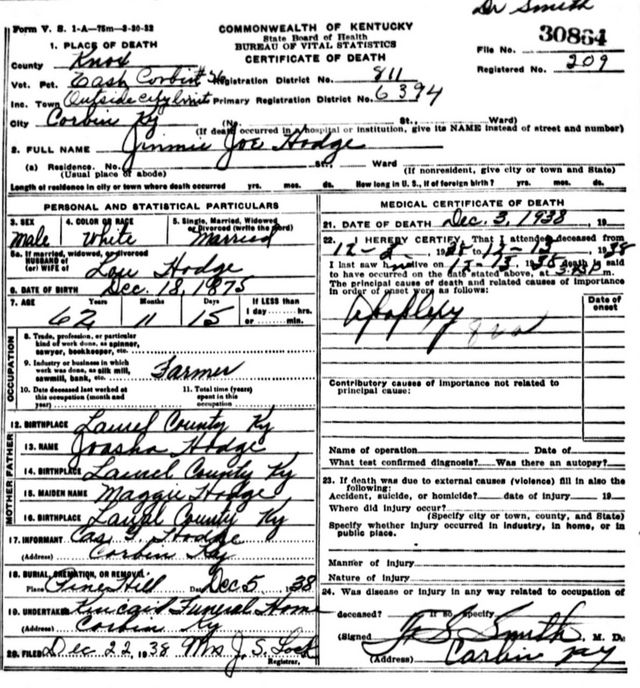 Dr Smith
Form V. S. 1-A—75m—8-30-32
COMMONWEALTH OF KENTUCKY
State Board of Health
BUREAU OF VITAL STATISTICS
CERTIFICATE OF DEATH
File No. 30864
Registered No. 209
1. PLACE OF DEATH
County Knox
Vot. Pct. East Corbin #26 Registration District No. 811
Inc. Town Outside city limits Primary Registration District No. 6394
City Corbin Ky (No. St., Ward)
(If death occurred in a hospital or institution, give its NAME instead of street and number)
2. FULL NAME Jimmie Joe Hodge
(a) Residence. No. St., Ward
(Usual place of abode) (If nonresident, give city or town and State)
Length of residence in city or town where death occurred yrs. mos. ds. How long in U. S., if of foreign birth? yrs. mos. ds.
PERSONAL AND STATISTICAL PARTICULARS
3. SEX Male
4. COLOR OR RACE White
5. Single, Married, Widowed or Divorced (write the word) Married
5a. If married, widowed, or divorced
HUSBAND of
(or) WIFE of Lou Hodge
6. DATE OF BIRTH Dec. 18, 1875
7. AGE Years Months Days If LESS than
62 11 15 1 day hrs.
or min.
OCCUPATION
8. Trade, profession, or particular kind of work done, as spinner, sawyer, bookkeeper, etc.
9. Industry or business in which work was done, as silk mill, sawmill, bank, etc. Farmer
10. Date deceased last worked at this occupation (month and year)
11. Total time (years) spent in this occupation
12. BIRTHPLACE Laurel County Ky
FATHER
13. NAME Joasha Hodge
14. BIRTHPLACE Laurel County Ky
MOTHER
15. MAIDEN NAME Maggie Hodge
16. BIRTHPLACE Laurel County Ky
17. INFORMANT Hodge
(Address) Corbin Ky
18. BURIAL, CREMATION, OR REMOVAL
Place Pine Hill Date Dec 5 1938
19. UNDERTAKER Kincaid Funeral Home
Corbin Ky
20. FILED Dec 22, 1938 Mrs J. S. Lock
Registrar.
MEDICAL CERTIFICATE OF DEATH
21. DATE OF DEATH Dec. 3, 1938, 19
22. I HEREBY CERTIFY, That I attended deceased from
12-2- 1938 12-13- 1938
I last saw h alive on 12-13 1938 death is said
to have occurred on the date stated above, at m.
The principal cause of death and related causes of importance in order of onset were as follows:
Date of onset
Apoplexy
Contributory causes of importance not related to principal cause:
Name of operation Date of
What test confirmed diagnosis? Was there an autopsy?
23. If death was due to external causes (violence) fill in also the following:
Accident, suicide, or homicide? date of injury 19
Where did injury occur?
(Specify city or town, county, and State)
Specify whether injury occurred in industry, in home, or in public place.
Manner of injury
Nature of injury
24. Was disease or injury in any way related to occupation of
deceased? If so specify
(Signed) Smith M. D.
(Address) Corbin Ky